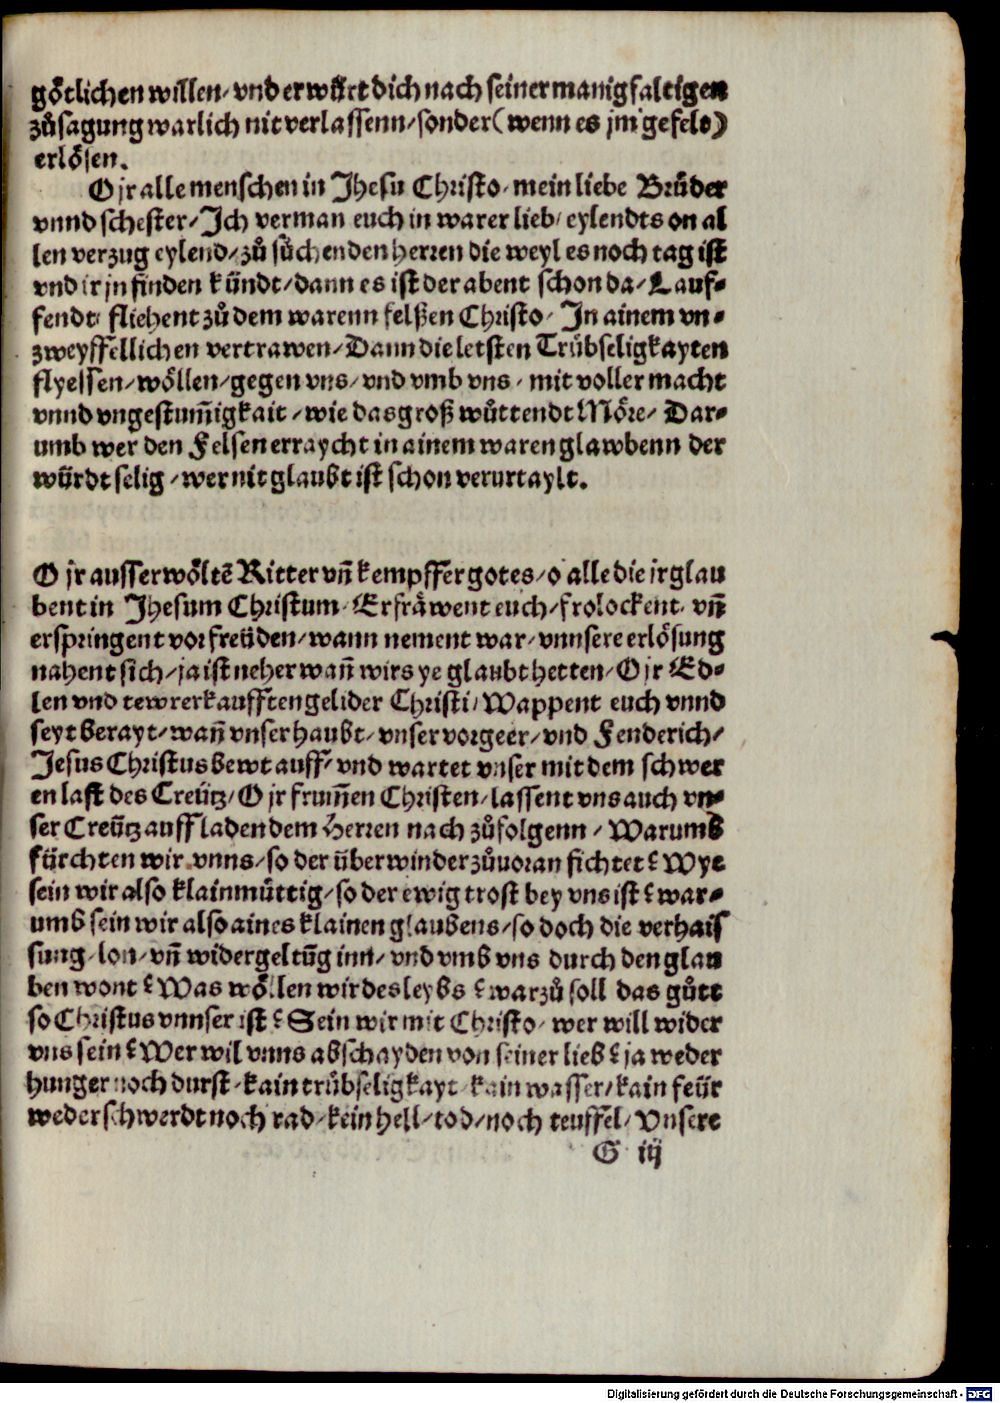 götlichen willen/ vnd er würt dich nach seiner manigfaltigen
zůsagung warlich nit verlassenn/ sonder (wenn es jm gefelt)
erlösen.
O jr alle menschen in Jhesu Christo/ mein liebe Brůder
vnnd schester/ Jch verman euch in warer lieb/ eylendts on al
len verzug eylend/ zů sůchen den Herren die weyl es noch tag ist
vnd ir jn finden kündt/ dann es ist der abent schon da/ Lauf⸗
fendt/ fliehent zů dem warenn felßen Christo/ Jn ainem vn⸗
zweyffellichen vertrawen/ Dann die letsten Trůbseligkayten
flyessen/ wöllen/ gegen vns/ vnd vmb vns/ mit voller macht
vnnd vngestum̃igkait/ wie das groß wůttendt Möre/ Dar⸗
umb wer den Felsen erraycht in ainem waren glawbenn der
würdt selig/ wer nit glaubt ist schon verurtaylt.
O jr ausserwöltẽ Ritter vñ kempffer gotes/ o alle die jr glau
bent in Jhesum Christum/ Erfräwent euch/ frolockent/ vñ
erspringent vor freüden/ wann nement war/ vnnsere erlösung
nahent sich/ ja ist neher wañ wirs ye glaubt hetten/ O jr Ed⸗
len vnd tewr erkaufften gelider Christi/ Wappent euch vnnd
seyt berayt/ wañ vnser haubt/ vnser vorgeer/ vnd Fenderich/
Jesus Christus bewt auff/ vnd wartet vnser mit dem schwer
en last des Creütz/ O jr frum̃en Christen/ lassent vns auch vn⸗
ser Creütz auff laden dem Herren nach zůfolgenn/ Warumb
fürchten wir vnns/ so der überwinder zůuoran fichtet? Wye
sein wir also klainmůttig/ so der ewig trost bey vns ist? war⸗
umb sein wir also aines klainen glaubens/ so doch die verhais
sung/ lon/ vñ widergeltũg inn/ vnd vmb vns durch den glau
ben wont? Was wöllen wir des leybs? warzů soll das gůtt
so Christus vnnser ist? Sein wir mit Christo/ wer will wider
vns sein? Wer wil vnns abschayden von seiner lieb? ja weder
hunger noch durst/ kain trůbseligkayt/ kain wasser/ kain feür
weder schwerdt noch rad/ kein hell/ tod/ noch teuffel/ Vnsere
G iij
Digitalisierung gefördert durch die Deutsche Forschungsgemeinschaft - DFG